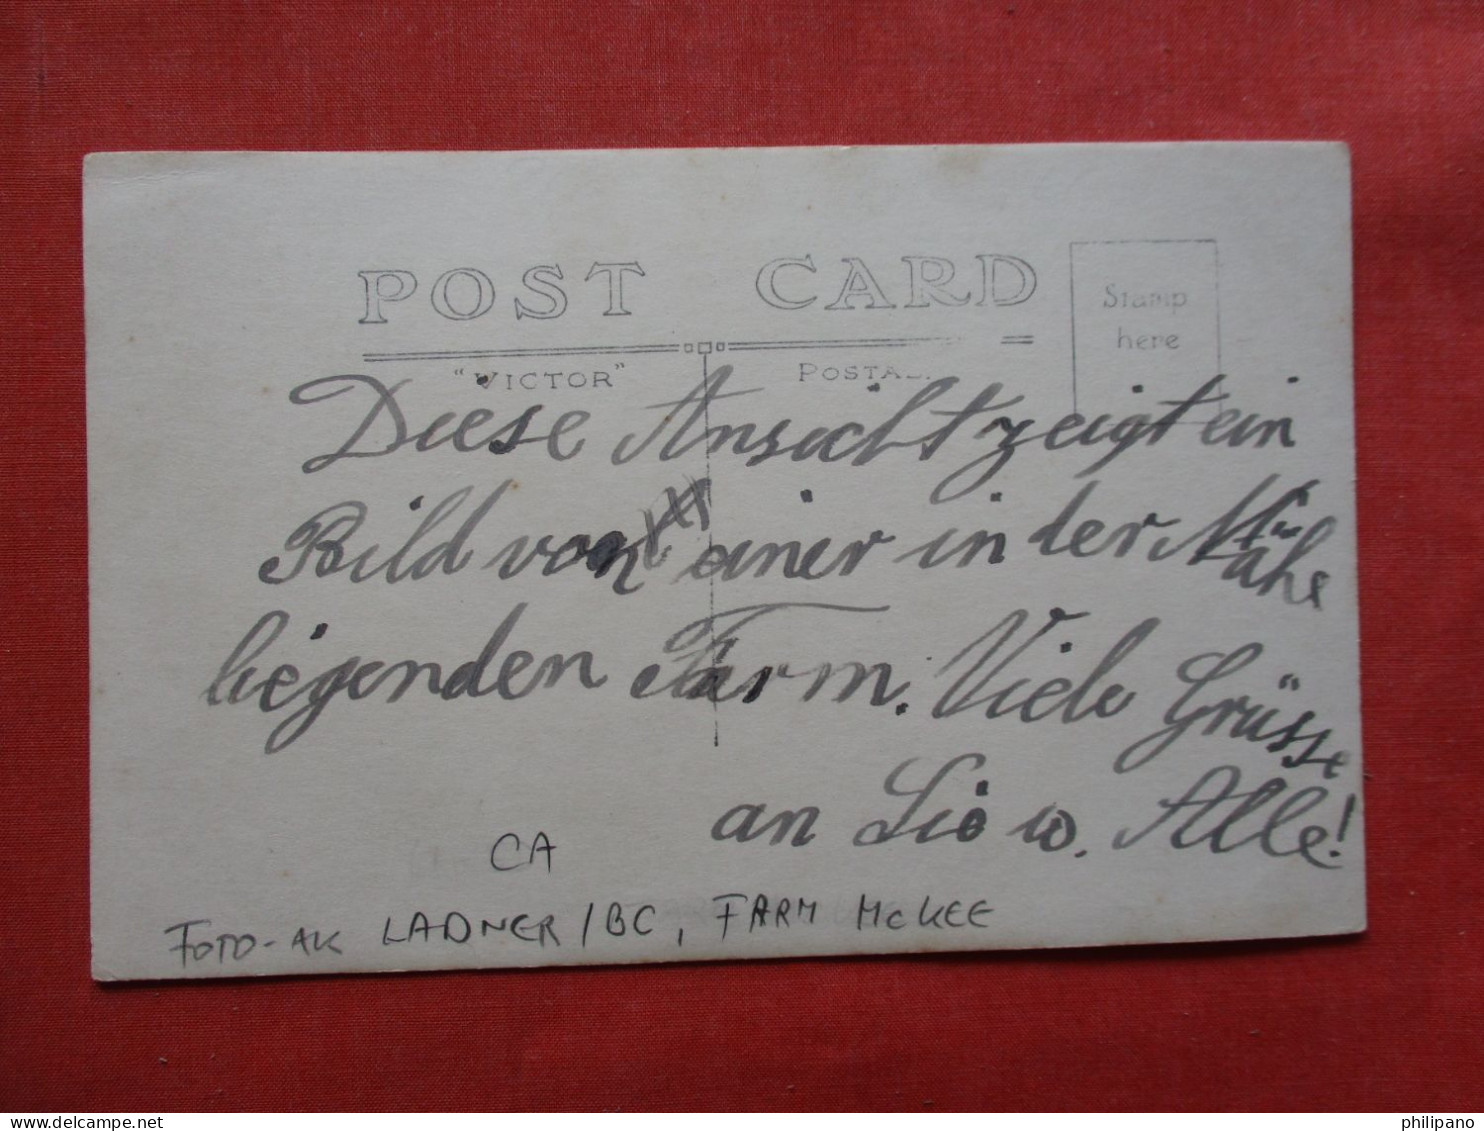 POST CARD
Stamp
here
"VICTOR" POSTAL
Diese Ansicht zeigt ein
Bild von einer in der Nähe
liegenden Farm. Viele Grüsse
an Sie u. Alle!
CA
FOTO-AK LADNER/BC, FARM McKEE
philipano